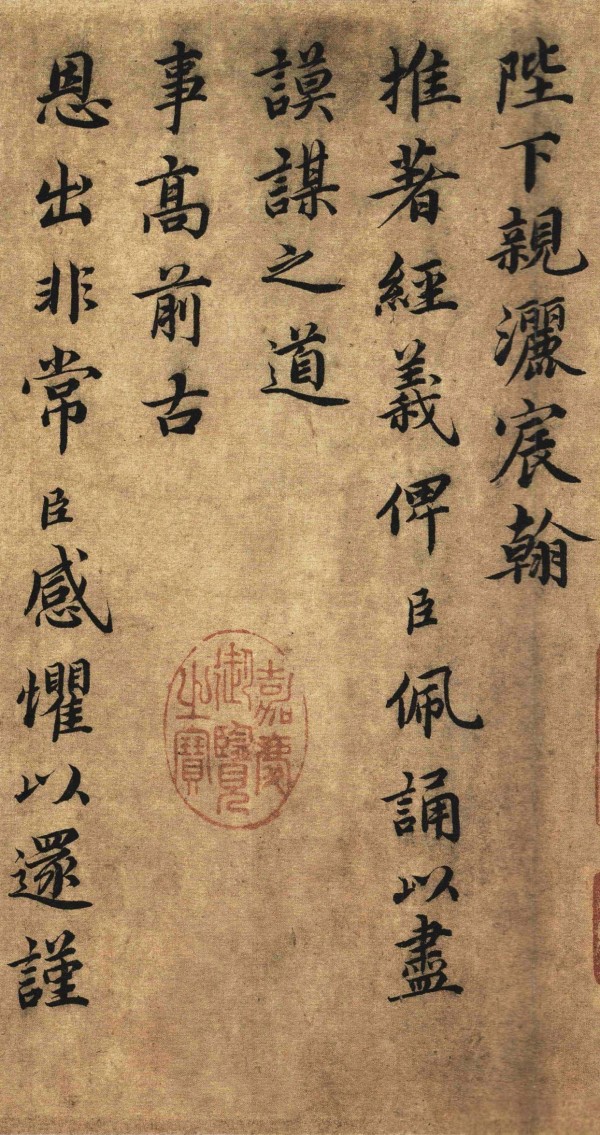 陛下親灑宸翰
推著經義俾臣佩誦以盡
謨謀之道
事高前古
恩出非常臣感懼以還謹
嘉慶御覽之寶